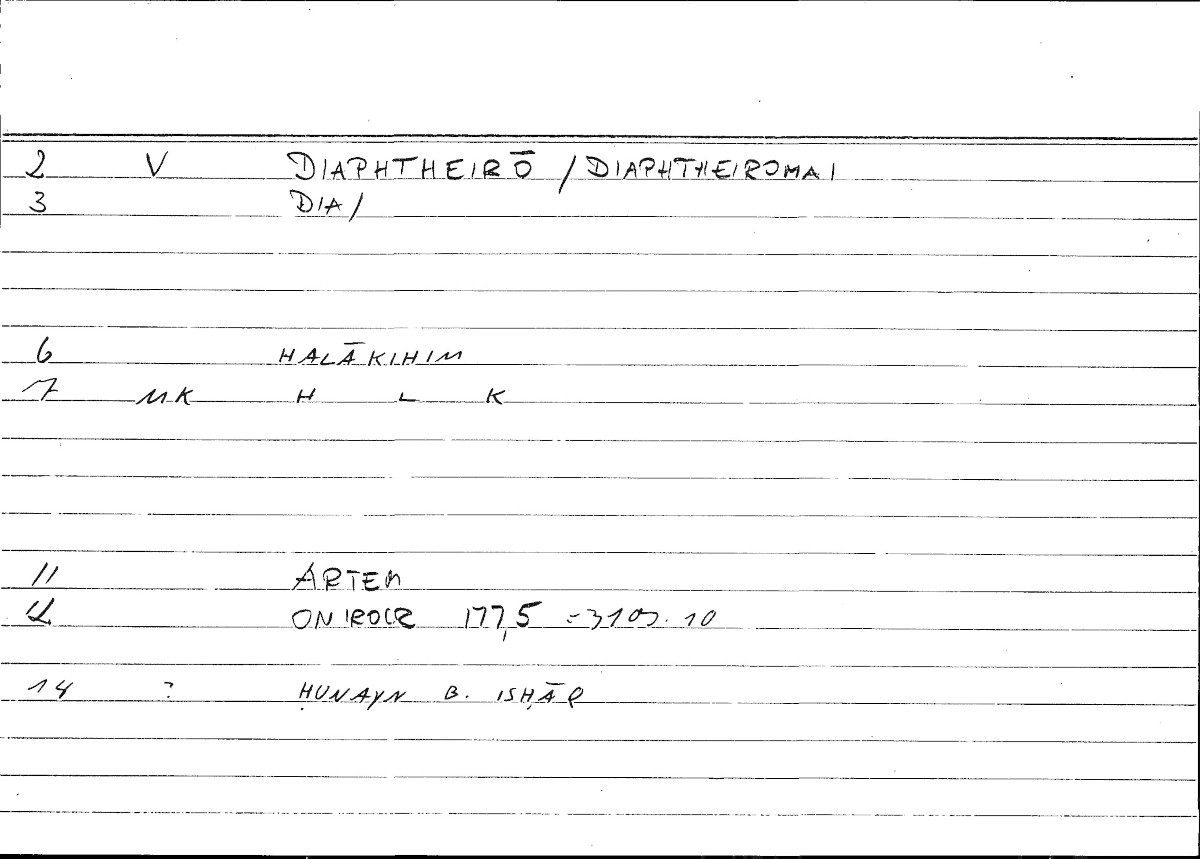 2 V DIAPHTHEIRŌ / DIAPHTHEIROMAI
3 DIA/
6 HALĀKIHIM
7 MK H L K
11 ARTEM
12 ONIROCR 177,5 = 310 10
14 ? ḤUNAYN B. ISḤĀQ